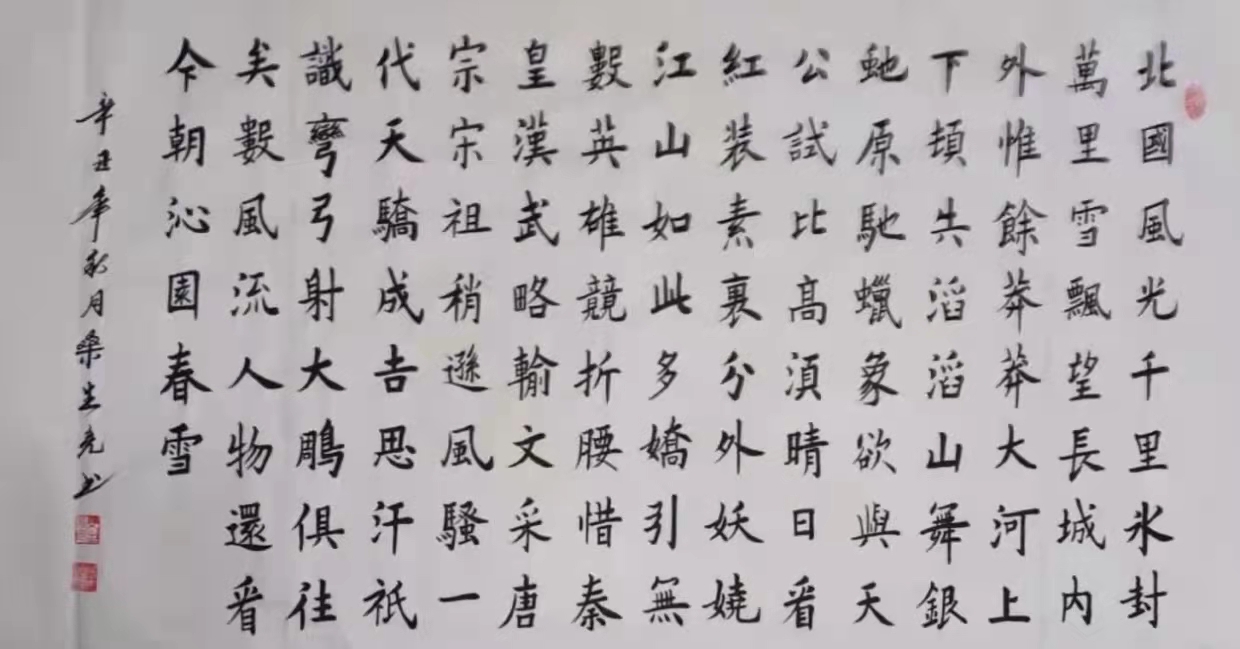 北國風光千里氷封
萬里雪飄望長城内
外惟餘莽莽大河上
下頓失滔滔山舞銀
虵原馳蠟象欲與天
公試比高須晴日看
紅装素裹分外妖嬈
江山如此多嬌引無
數英雄競折腰惜秦
皇漢武略輸文采唐
宗宋祖稍遜風騷一
代天驕成吉思汗祇
識彎弓射大鵰俱往
矣數風流人物還看
今朝沁園春雪
辛丑年秋月桑生光书